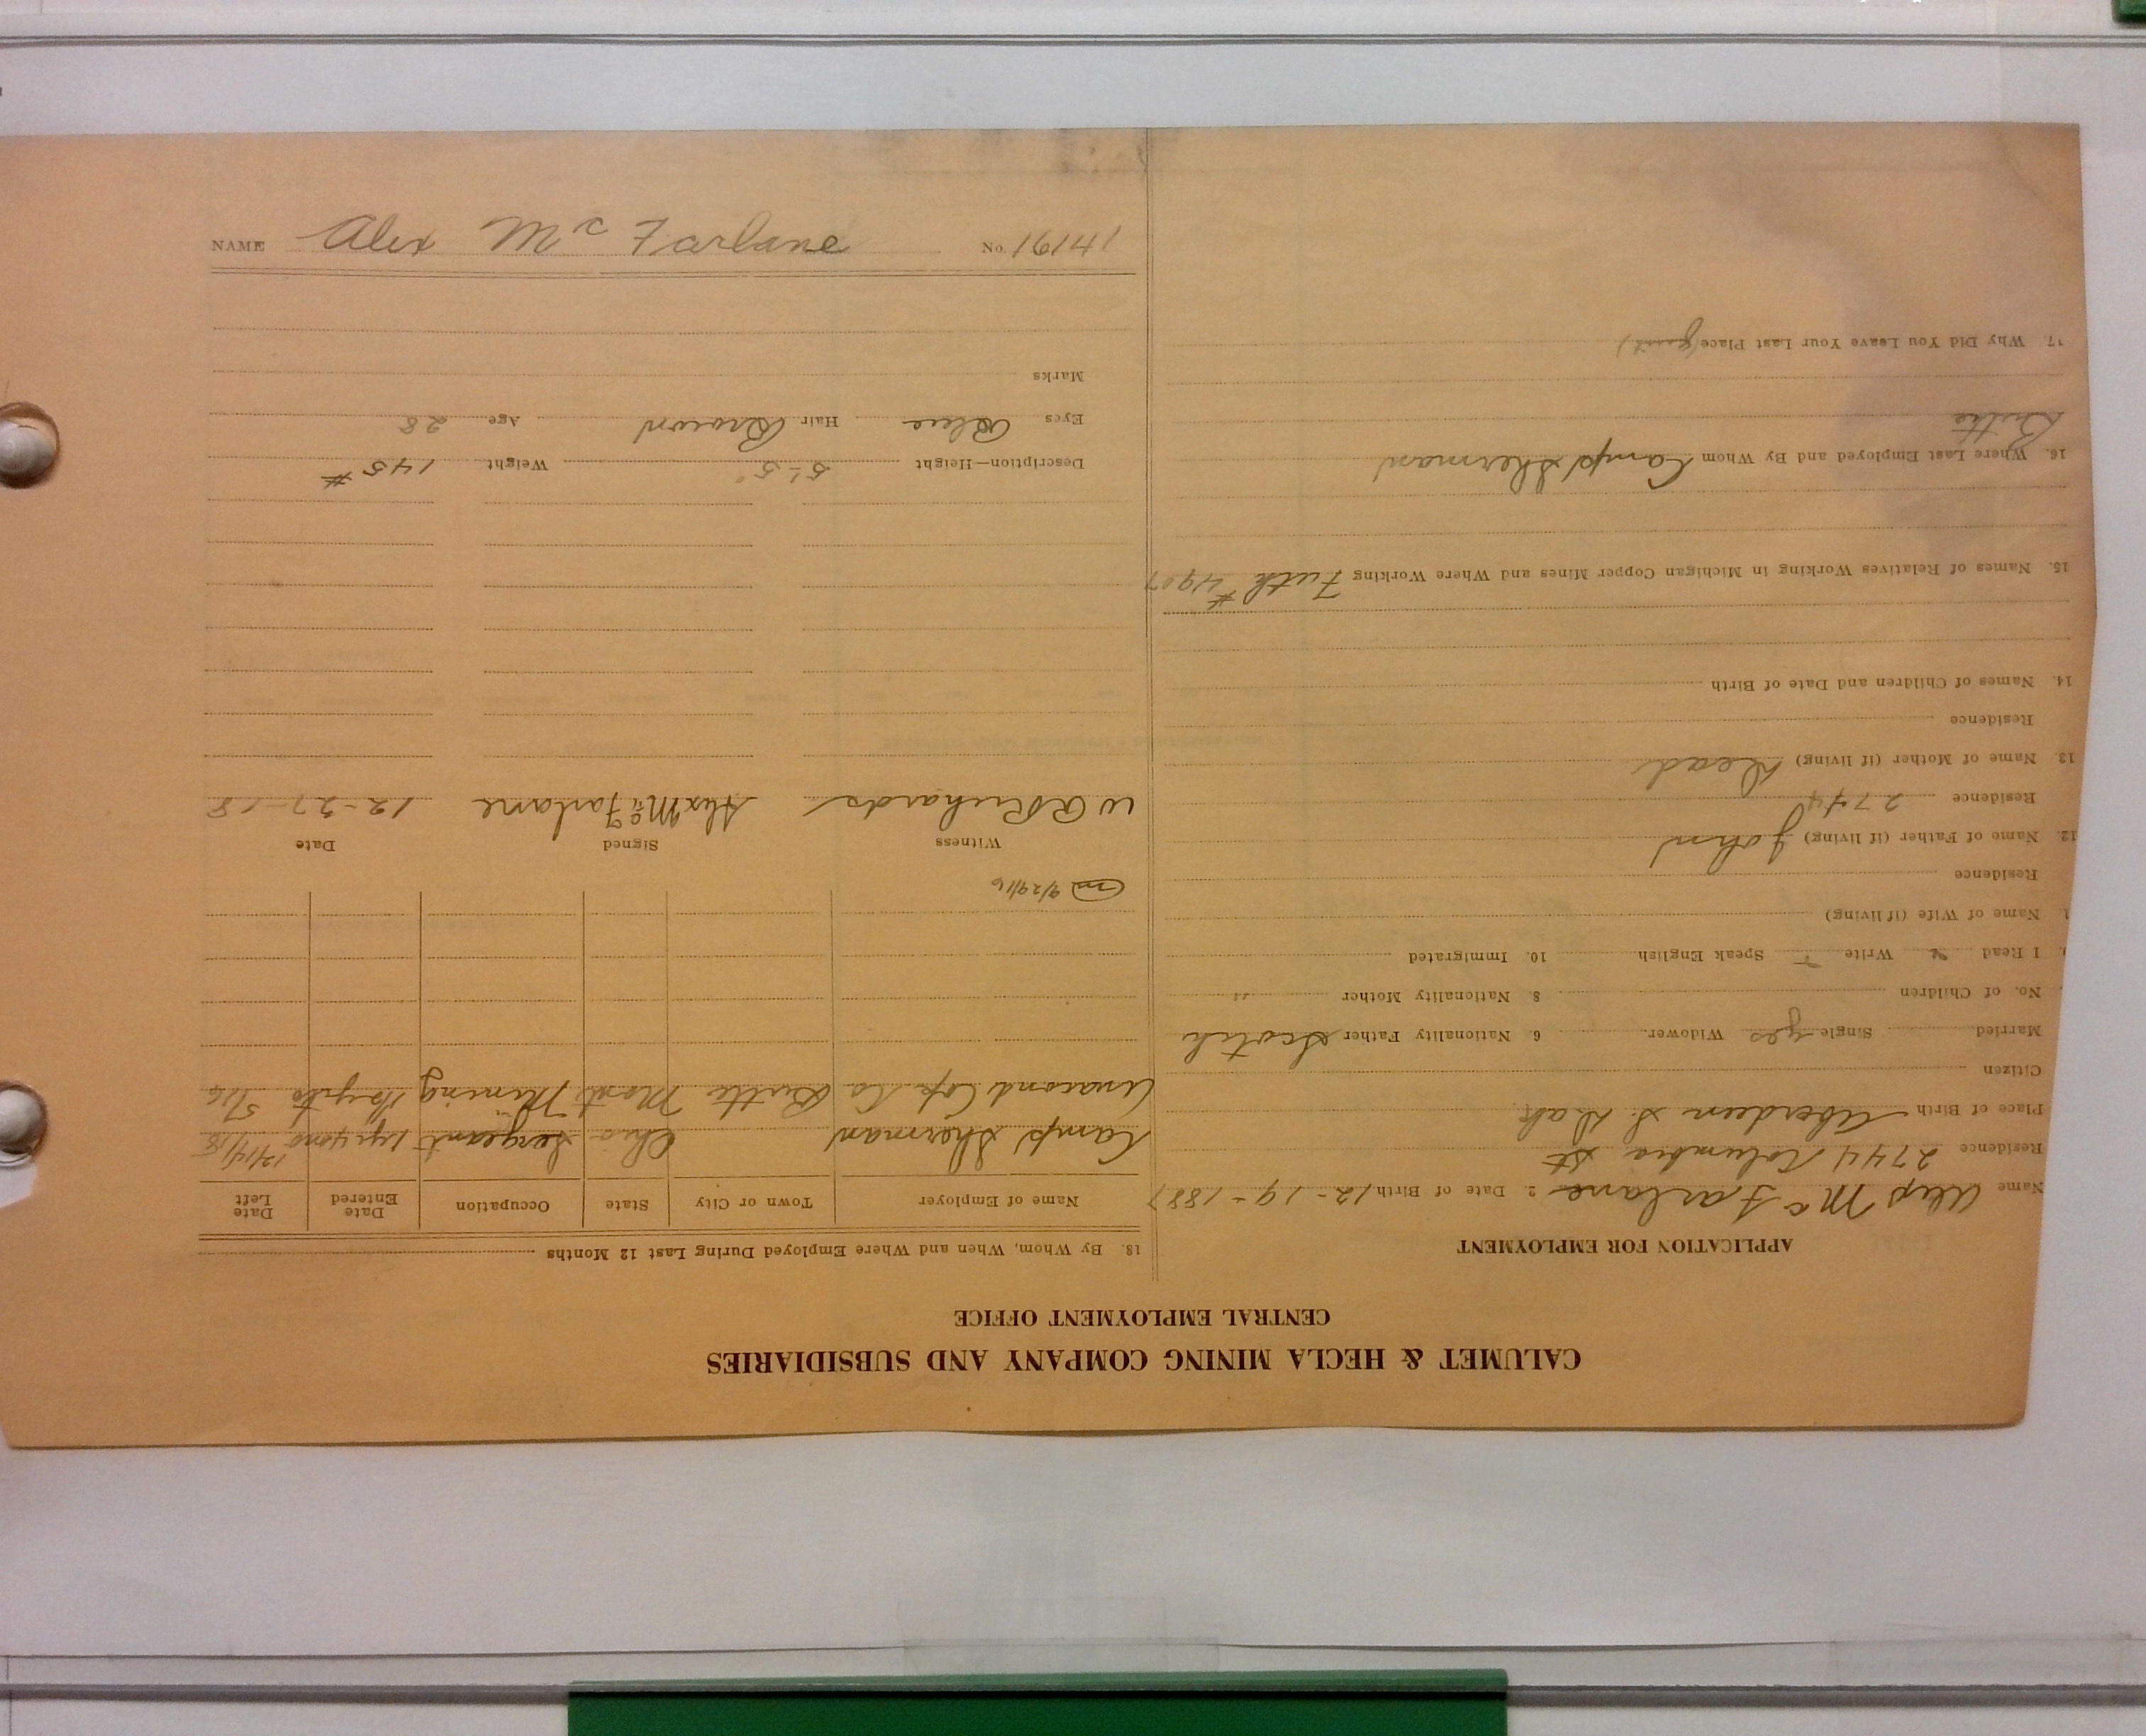 CALUMET & HECLA MINING COMPANY AND SUBSIDIARIES
CENTRAL EMPLOYMENT OFFICE
APPLICATION FOR EMPLOYMENT
Name Alex Mc Farlane 2. Date of Birth 12-19-1887
Residence 2744 Columbia St
Place of Birth Aberdeen S. Dak
Citizen
Married Single yes Widower 6. Nationality Father Scotch
No. of Children 8. Nationality Mother "
I Read Write Speak English 10. Immigrated
1. Name of Wife (if living)
Residence
12. Name of Father (if living) John
Residence 2744
13. Name of Mother (if living) Dead
Residence
14. Names of Children and Date of Birth
15. Names of Relatives Working in Michigan Copper Mines and Where Working Fath # 4907
16. Where Last Employed and By Whom Camp Sherman
Butte
17. Why Did You Leave Your Last Place (quit)
18. By Whom, When and Where Employed During Last 12 Months
Name of Employer Town or City State Occupation Date Entered Date Left
Camp Sherman Ohio Sergeant 1 yr 4 mo 12/14/18
Anacond Cop. Co Butte Mont Mining 5/16
m 9/29/16
Witness Signed Date
W R Richards Alex Mc Farlane 12-27-18
Description—Height 5'-5" Weight 145 #
Eyes Blue Hair Brown Age 28
Marks
NAME Alex Mc Farlane No. 16141